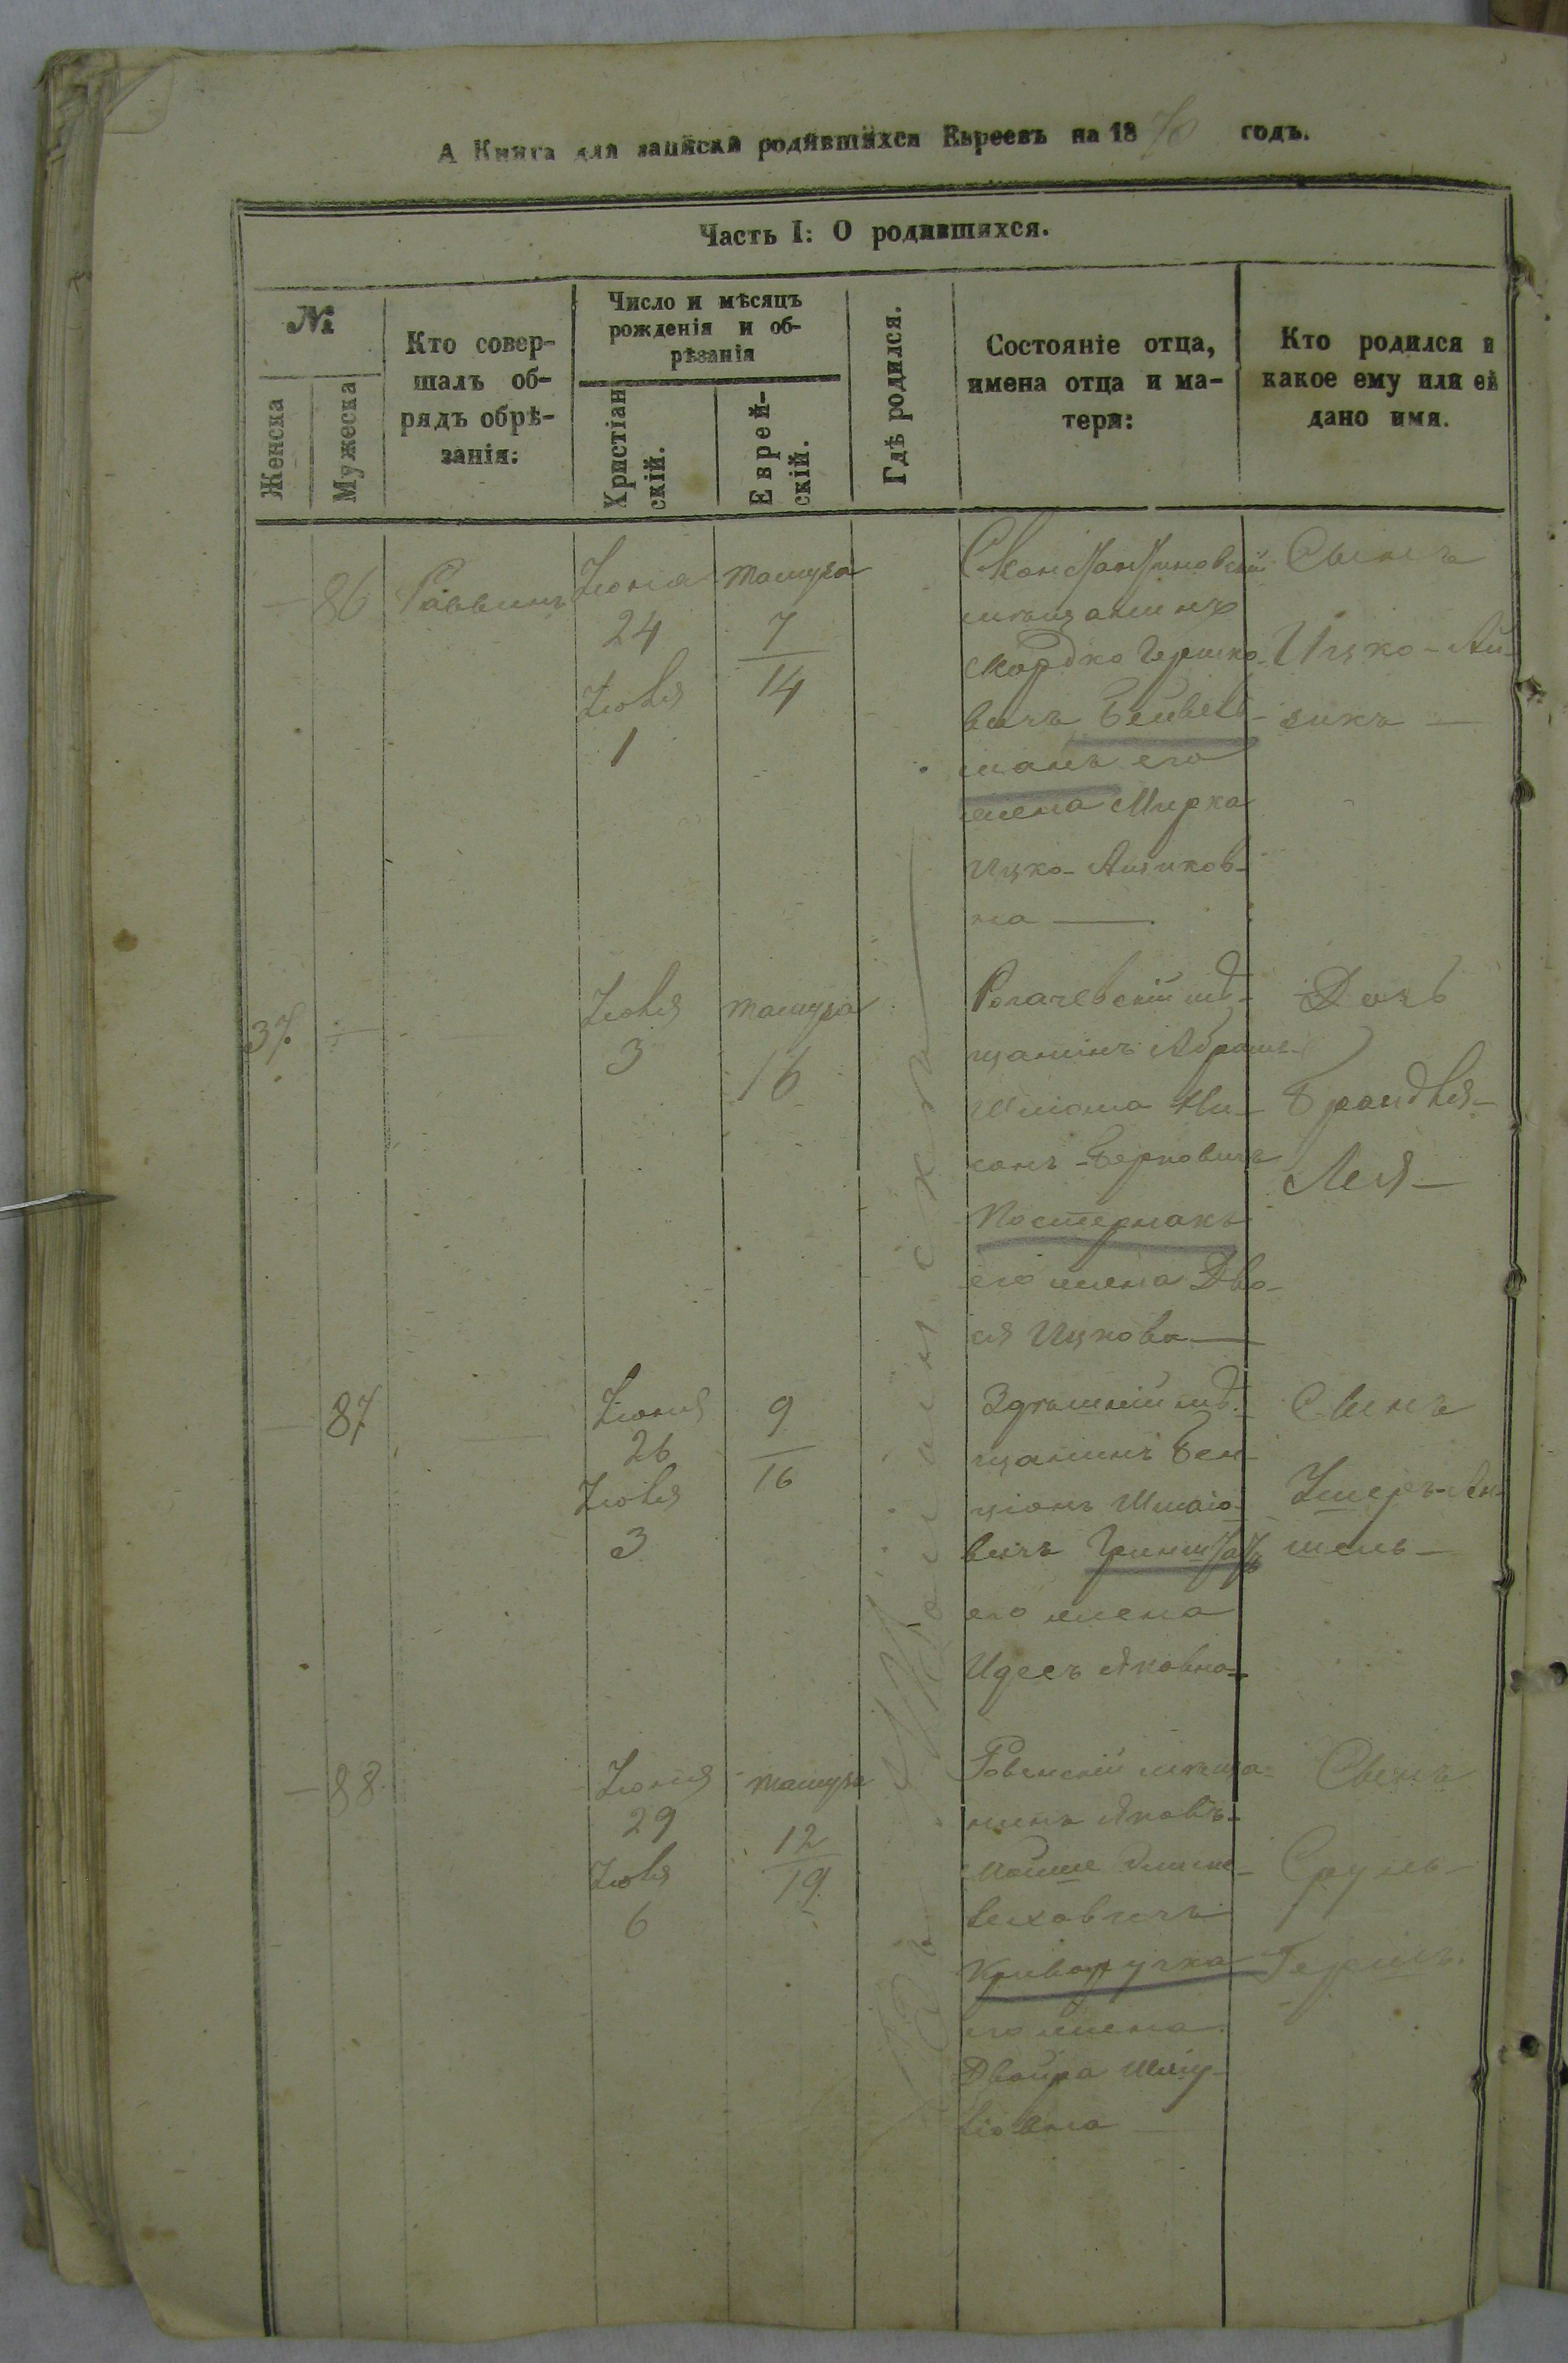 А Книга для записки родившихся Евреевъ на 1870 годъ.
Часть I: О родившихся.
№
Женска
Мужеска
Кто совер-
шалъ об-
рядъ обрѣ-
занія:
Число и мѣсяцъ
рожденія и об-
рѣзанія
Христіан
скій.
Еврей-
скій.
Гдѣ родился.
Состояніе отца,
имена отца и ма-
тери:
Кто родился и
какое ему или ей
дано имя.
— 86
Раввинъ
Іюня
24
Іюля
1
тамуза
7
14
Константиновскій
мѣщанинъ
Мордко Гершко-
вичъ
его
жена Мирка
Ицко-Айзиков-
на —
Сынъ
Ицко-Ай-
зикъ —
37 —
—
Іюля
3
тамуза
16
Рогачевскій мѣ-
щанинъ Абрамъ
Берковичъ
Постернакъ
его жена Дво-
ся Ицкова —
Дочь
Брандля-
Лея —
— 87
—
Іюня
26
Іюля
3
9
16
Здѣшній мѣ-
щанинъ Бен-
ціонъ
вичъ
его жена
Идесъ Яковна
Сынъ
Ушеръ-Ан-
шель —
— 88
Іюня
29
Іюля
6
тамуза
12
19
Ровенскій мѣща-
нинъ Яковъ-
Мойше
Криворучка
его жена
Двойра Шму-
ліовна
Сынъ
Сруль-
Гершъ.